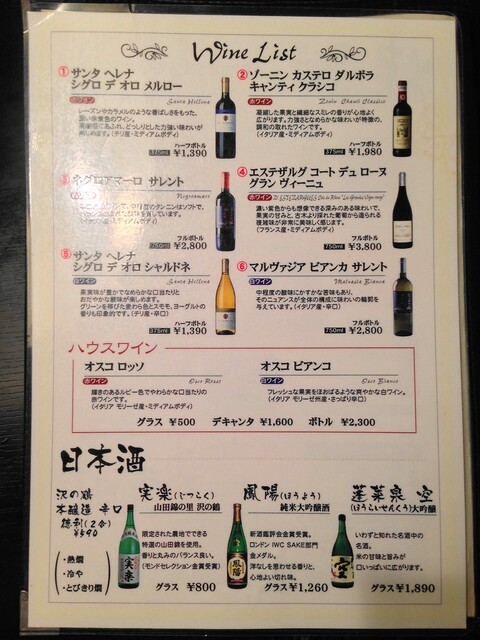 Wine List
① サンタ ヘレナ
シグロ デ オロ メルロー
赤ワイン Santa Hellena
レーズンやカラメルのような香ばしさをもった、
深い赤紫色のワイン。
果実味にあふれ、どっしりとした力強い味わいが
楽しめます。(チリ産・ミディアムボディ)
ハーフボトル
375ml ¥1,390
② ゾーニン カステロ ダルボラ
キャンティ クラシコ
赤ワイン Zonin Chianti Classico
凝縮した果実と繊細なスミレの香りが心地よく
広がります。力強さとなめらかな味わいが特徴の、
調和の取れたワインです。
(イタリア産・ミディアムボディ)
ハーフボトル
375ml ¥1,980
③ ネグロアマーロ サレント
赤ワイン Negroamaro
タンニンはソフトで、
(イタリア産・ミディアムボディ)
フルボトル
750ml ¥2,800
④ エステザルグ コート デュ ローヌ
グラン ヴィーニュ
赤ワイン D'ESTEZARGUES Côtes du Rhône "La Grandes Vignes rouge"
濃い紫色からも想像できる深みのある味わいで、
果実の甘みと、古木より採れた葡萄から造られる
複雑味が非常に美味しく感じます。
(フランス産・ミディアムボディ)
フルボトル
750ml ¥3,800
⑤ サンタ ヘレナ
シグロ デ オロ シャルドネ
白ワイン Santa Hellena
果実味が豊かでなめらかな口当たりと
おだやかな酸味が楽しめます。
グリーンを帯びた麦わら色とスモモ、ヨーグルトの
香りも印象的です。(チリ産・辛口)
ハーフボトル
375ml ¥1,390
⑥ マルヴァジア ビアンカ サレント
白ワイン Malvasia Bianca
中程度の酸味にかすかな苦味もあり、
そのニュアンスが全体の構成に味わいの輪郭を
与えています。(イタリア産・辛口)
フルボトル
750ml ¥2,800
ハウスワイン
オスコ ロッソ
赤ワイン Osco Rosso
輝きのあるルビー色でやわらかな口当たりの
赤ワインです。
(イタリア モリーゼ産・ミディアムボディ)
オスコ ビアンコ
白ワイン Osco Bianco
フレッシュな果実をほおばるような爽やかな白ワイン。
(イタリア モリーゼ州産・さっぱり辛口)
グラス ¥500 デキャンタ ¥1,600 ボトル ¥2,300
日本酒
沢の鶴
本醸造 辛口
徳利(2合)
¥590
・熱燗
・冷や
・とびきり燗
実楽(じつらく)
山田錦の里 沢の鶴
限定された農地でできる
特選の山田錦を使用。
香りと丸みのバランス良い。
(モンドセレクション金賞受賞)
グラス ¥800
鳳陽(ほうよう)
純米大吟醸酒
新酒鑑評会金賞受賞。
ロンドン IWC SAKE部門
金メダル。
洋なしを思わせる香りと、
心地よい切れ味。
グラス ¥1,260
蓬莱泉 空
(ほうらいせんくう)大吟醸
いわずと知れた名酒中の
名酒。
米の甘味と旨みが
口いっぱいに広がります。
グラス ¥1,890
実楽
鳳陽
空